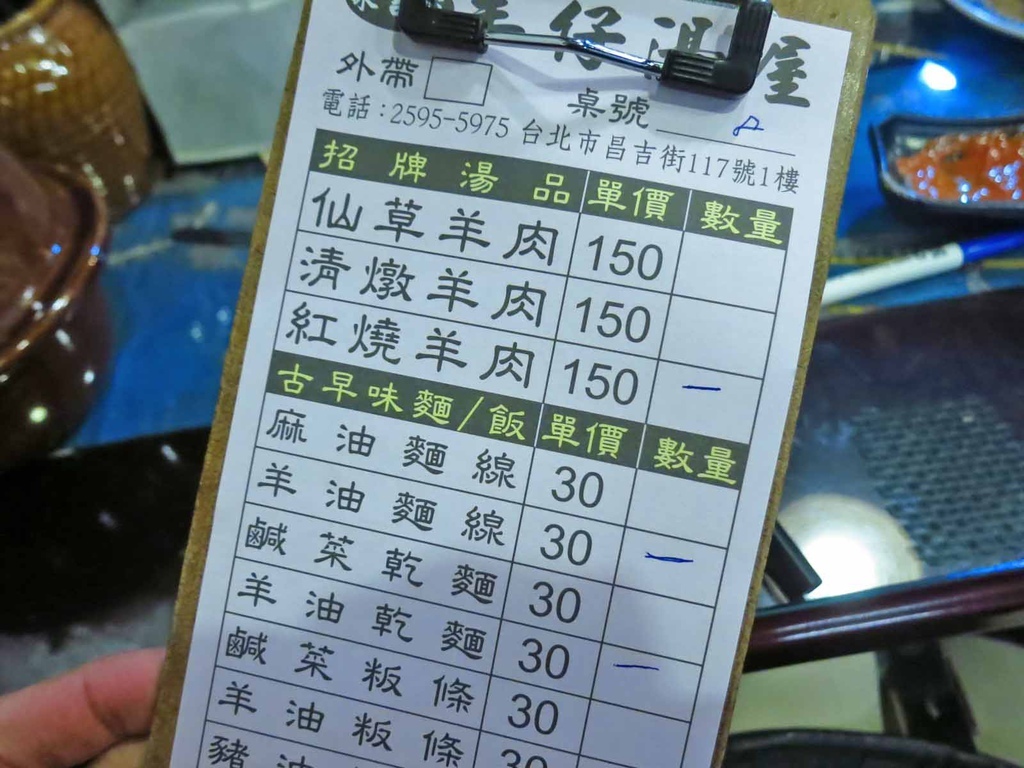 羊仔湯屋
外帶
桌號
電話：2595-5975 台北市昌吉街117號1樓
招牌湯品 單價 數量
仙草羊肉 150
清燉羊肉 150
紅燒羊肉 150 一
古早味麵/飯 單價 數量
麻油麵線 30
羊油麵線 30 一
鹹菜乾麵 30
羊油乾麵 30 一
鹹菜粄條 30
羊油粄條 30
豬油